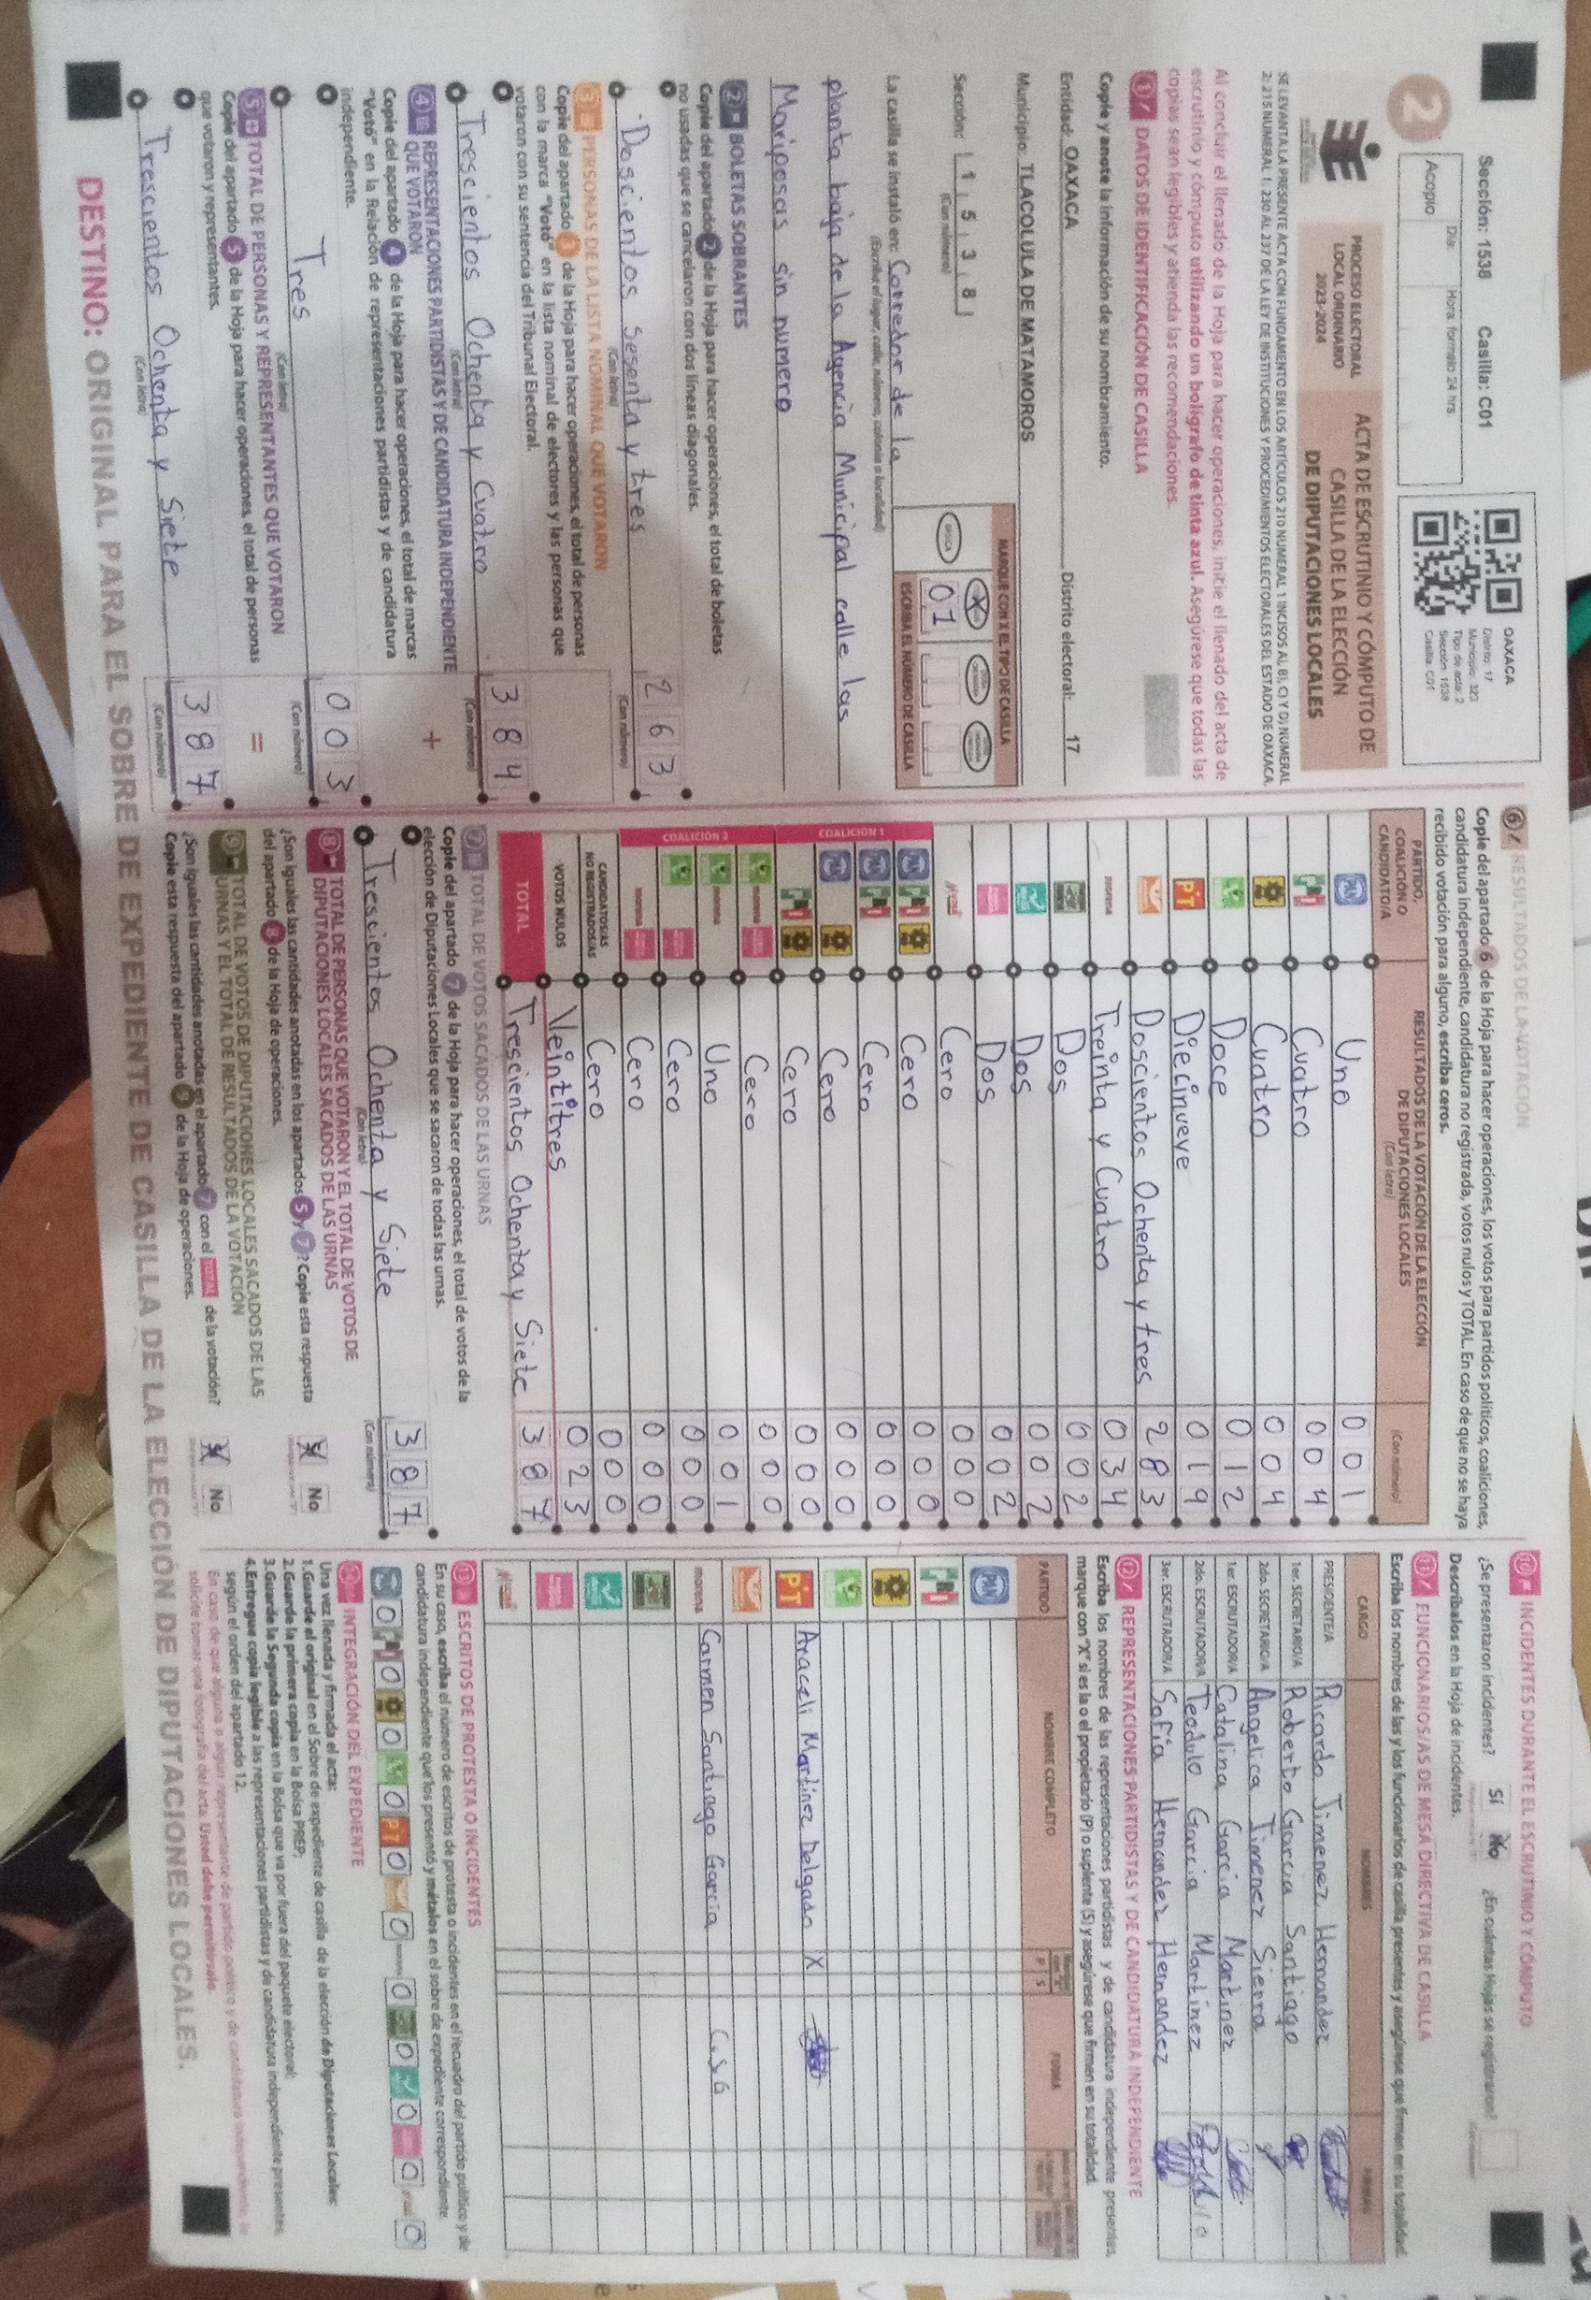 Sección: 1538 Casilla: C01
Día: Hora formato 24 hrs
Acopio
2
OAXACA
Distrito: 17
Municipio: 323
Tipo de acta: 2
Sección: 1538
Casilla: C01
PROCESO ELECTORAL
LOCAL ORDINARIO
2023-2024
ACTA DE ESCRUTINIO Y CÓMPUTO DE
CASILLA DE LA ELECCIÓN
DE DIPUTACIONES LOCALES
SE LEVANTA LA PRESENTE ACTA CON FUNDAMENTO EN LOS ARTÍCULOS 210 NUMERAL 1 INCISOS A), B), C) Y D) NUMERAL
2; 215 NUMERAL 1; 230 AL 237 DE LA LEY DE INSTITUCIONES Y PROCEDIMIENTOS ELECTORALES DEL ESTADO DE OAXACA.
Al concluir el llenado de la Hoja para hacer operaciones, inicie el llenado del acta de
escrutinio y cómputo utilizando un bolígrafo de tinta azul. Asegúrese que todas las
copias sean legibles y atienda las recomendaciones.
1 DATOS DE IDENTIFICACIÓN DE CASILLA
Copie y anote la información de su nombramiento.
Entidad: OAXACA Distrito electoral: 17
Municipio: TLACOLULA DE MATAMOROS
Sección: 1 5 3 8
(Con número)
MARQUE CON X EL TIPO DE CASILLA
BÁSICA X
01
ESCRIBA EL NÚMERO DE CASILLA
La casilla se instaló en: Corredor de la
(Escriba el lugar, calle, número, colonia o localidad)
planta baja de la Agencia Municipal calle las
Mariposas sin numero
2 BOLETAS SOBRANTES
Copie del apartado 2 de la Hoja para hacer operaciones, el total de boletas
no usadas que se cancelaron con dos líneas diagonales.
Doscientos sesenta y tres 2 6 3
(Con letra) (Con número)
3 PERSONAS DE LA LISTA NOMINAL QUE VOTARON
Copie del apartado 3 de la Hoja para hacer operaciones, el total de personas
con la marca "Votó" en la lista nominal de electores y las personas que
votaron con su sentencia del Tribunal Electoral.
Trescientos Ochenta y Cuatro 3 8 4
(Con letra) (Con número)
4 REPRESENTACIONES PARTIDISTAS Y DE CANDIDATURA INDEPENDIENTE
QUE VOTARON
+
Copie del apartado 4 de la Hoja para hacer operaciones, el total de marcas
"Votó" en la Relación de representaciones partidistas y de candidatura
independiente.
Tres 0 0 3
(Con letra) (Con número)
5 TOTAL DE PERSONAS Y REPRESENTANTES QUE VOTARON
=
Copie del apartado 5 de la Hoja para hacer operaciones, el total de personas
que votaron y representantes.
Trescientos Ochenta y Siete 3 8 7
(Con letra) (Con número)
6 RESULTADOS DE LA VOTACIÓN
Copie del apartado 6 de la Hoja para hacer operaciones, los votos para partidos políticos, coaliciones,
candidatura independiente, candidatura no registrada, votos nulos y TOTAL. En caso de que no se haya
recibido votación para alguno, escriba ceros.
PARTIDO,
COALICIÓN O
CANDIDATO/A
RESULTADOS DE LA VOTACIÓN DE LA ELECCIÓN
DE DIPUTACIONES LOCALES
(Con letra)
(Con número)
PAN Uno 0 0 1
PRI Cuatro 0 0 4
Cuatro 0 0 4
Doce 0 1 2
PT Diecinueve 0 1 9
Doscientos Ochenta y tres 2 8 3
morena Treinta y Cuatro 0 3 4
Dos 0 0 2
Dos 0 0 2
Dos 0 0 2
Cero 0 0 0
COALICIÓN 1
PAN PRI Cero 0 0 0
PAN PRI Cero 0 0 0
PAN Cero 0 0 0
PRI Cero 0 0 0
COALICIÓN 2
morena Cero 0 0 0
morena Uno 0 0 1
Cero 0 0 0
morena Cero 0 0 0
CANDIDATOS/AS
NO REGISTRADOS/AS Cero 0 0 0
VOTOS NULOS Veintitres 0 2 3
TOTAL Trescientos Ochenta y Siete 3 8 7
7 TOTAL DE VOTOS SACADOS DE LAS URNAS
Copie del apartado 7 de la Hoja para hacer operaciones, el total de votos de la
elección de Diputaciones Locales que se sacaron de todas las urnas.
Trescientos Ochenta y Siete 3 8 7
(Con letra) (Con número)
8 TOTAL DE PERSONAS QUE VOTARON Y EL TOTAL DE VOTOS DE
DIPUTACIONES LOCALES SACADOS DE LAS URNAS
¿Son iguales las cantidades anotadas en los apartados 5 y 7? Copie esta respuesta
del apartado 8 de la Hoja de operaciones.
X No
9 TOTAL DE VOTOS DE DIPUTACIONES LOCALES SACADOS DE LAS
URNAS Y EL TOTAL DE RESULTADOS DE LA VOTACIÓN
¿Son iguales las cantidades anotadas en el apartado 7 con el TOTAL de la votación?
Copie esta respuesta del apartado 9 de la Hoja de operaciones.
X No
10 INCIDENTES DURANTE EL ESCRUTINIO Y CÓMPUTO
¿Se presentaron incidentes? Sí No ¿En cuántas Hojas se registraron?
Descríbalos en la Hoja de incidentes.
11 FUNCIONARIOS/AS DE MESA DIRECTIVA DE CASILLA
Escriba los nombres de las y los funcionarios de casilla presentes y asegúrese que firmen en su totalidad.
CARGO NOMBRES FIRMAS
PRESIDENTE/A Ricardo Jimenez Hernandez
1er. SECRETARIO/A Roberto Garcia Santiago
2do. SECRETARIO/A Angelica Jimenez Sierra
1er. ESCRUTADOR/A Catalina Garcia Martinez
2do. ESCRUTADOR/A Teodulo Garcia Martinez
3er. ESCRUTADOR/A Sofia Hernandez Hernandez
12 REPRESENTACIONES PARTIDISTAS Y DE CANDIDATURA INDEPENDIENTE
Escriba los nombres de las representaciones partidistas y de candidatura independiente presentes,
marque con "X" si es la o el propietario (P) o suplente (S) y asegúrese que firmen en su totalidad.
PARTIDO NOMBRE COMPLETO P S FIRMA
PAN
PRI
PT Araceli Martinez Delgado X
morena Carmen Santiago Garcia C.S G
13 ESCRITOS DE PROTESTA O INCIDENTES
En su caso, escriba el número de escritos de protesta o incidentes en el recuadro del partido político y de
candidatura independiente que los presentó y métalos en el sobre de expediente correspondiente.
0 0 0 0 PT 0 0 0 0 0 0 0
14 INTEGRACIÓN DEL EXPEDIENTE
Una vez llenada y firmada el acta:
1.Guarde el original en el Sobre de expediente de casilla de la elección de Diputaciones Locales;
2.Guarda la primera copia en la Bolsa PREP;
3.Guarda la Segunda copia en la Bolsa que va por fuera del paquete electoral;
4.Entregue copia legible a las representaciones partidistas y de candidatura independiente presentes,
según el orden del apartado 12.
solicite tomar una fotografía del acta. Usted debe permitírselo.
DESTINO: ORIGINAL PARA EL SOBRE DE EXPEDIENTE DE CASILLA DE LA ELECCIÓN DE DIPUTACIONES LOCALES.